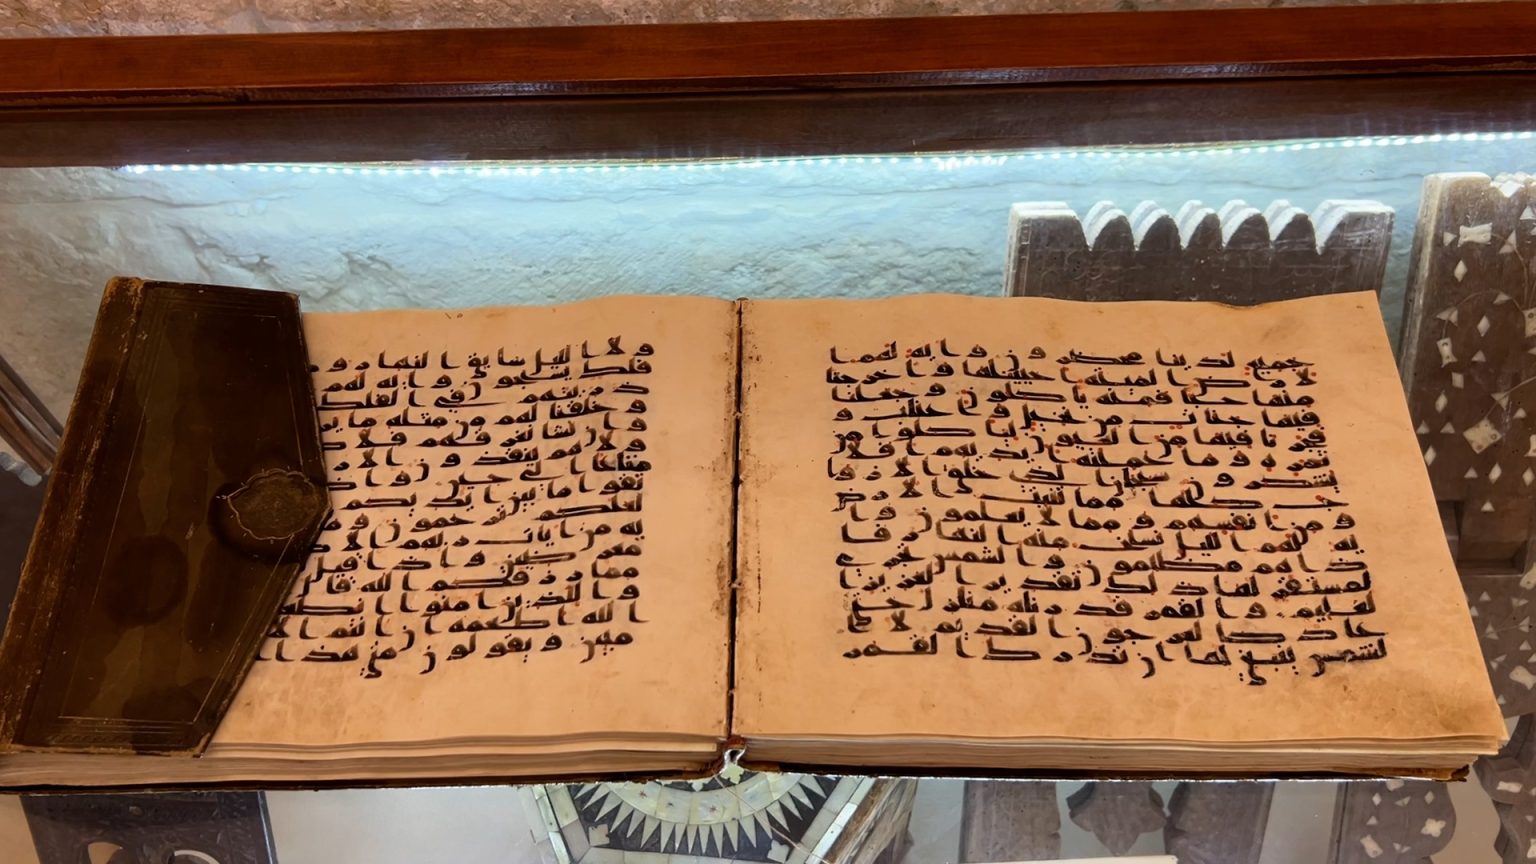 جميع لدينا محضرون و اية لهم ا
لارض الميتة احييناها و اخرجنا
منها حبا فمنه ياكلون و جعلنا
فيها جنات من نخيل و اعناب و
فجرنا فيها من العيون لياكلوا من
ثمره و ما عملته ايديهم افلا
يشكرون سبحان الذي خلق الازوا
ج كلها مما تنبت الارض
و من انفسهم و مما لا يعلمون و ا
ية لهم الليل نسلخ منه النهار فا
ذا هم مظلمون و الشمس تجري
لمستقر لها ذلك تقدير العزيز ا
لعليم و القمر قدرنه منازل حتى
عاد كالعرجون القديم لا ا
لشمس ينبغي لها ان تدرك القمر
و لا الليل سابق النهار و
فلك يسبحون و اية لهم
ذريتهم في الفلك
و خلقنا لهم من مثله ما ير
و ان نشا نغرقهم فلا
و لا هم ينقذون الا
متاعا الى حين و اذا
تقوا ما بين ايديكم
لعلكم ترحمون و ما
ية من ايات ربهم الا
معرضين و اذا قيل
مما رزقكم الله قال
وا للذين امنوا انطعم
الله اطعمه ان انتم الا
مبين و يقولون متى هذا ا